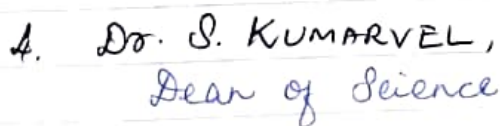 4. Dr. S. KUMARVEL,
Dean of Science